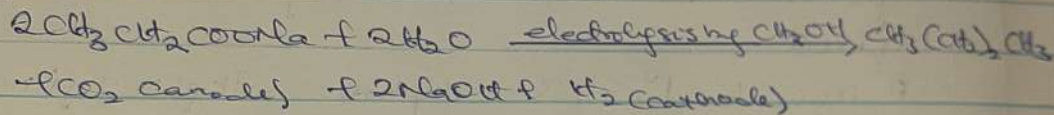 2CH3CH2COONa + 2H2O electrolysising CH3OH, CH3(CH2)2CH3
+CO2 (anode) + 2NaOH + H2 (cathode)